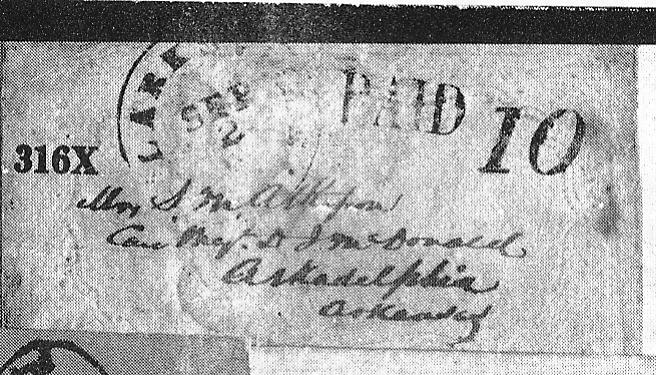 LARE
SEP
2
PAID 10
316X
Mrs S M Atkison
Care Majr D J McDonald
Arkadelphia
Arkansas